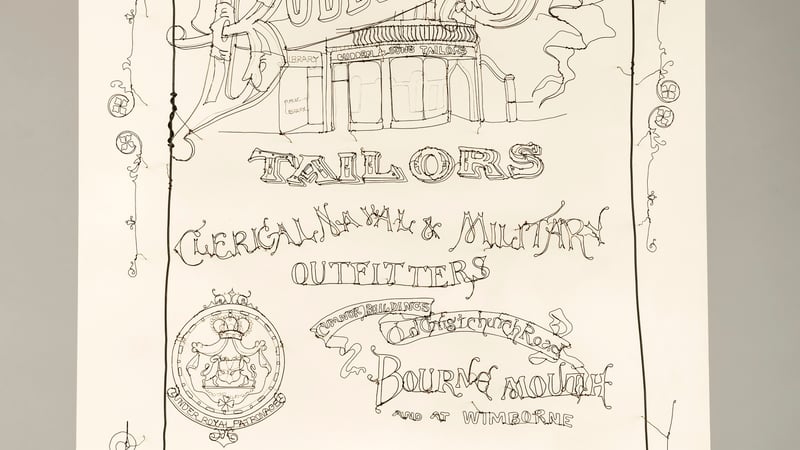 LIBRARY
BUDDEN & SONS TAILORS
TAILORS
CLERICAL NAVAL & MILITARY
OUTFITTERS
BUILDINGS
Old Christchurch Road
BOURNEMOUTH
AND AT WIMBORNE
UNDER ROYAL PATRONAGE